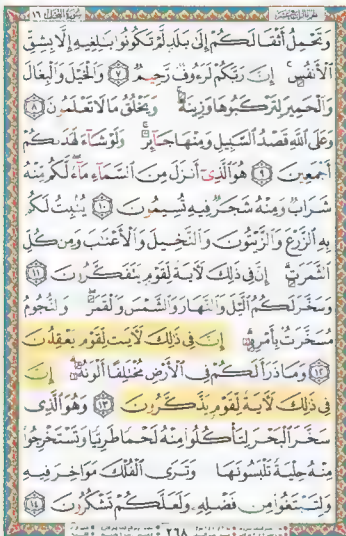 سُورَةُ النَّحْلِ ١٦
وَتَحْمِلُ أَثْقَالَكُمْ إِلَىٰ بَلَدٍ لَّمْ تَكُونُوا۟ بَٰلِغِيهِ إِلَّا بِشِقِّ
ٱلْأَنفُسِ ۚ إِنَّ رَبَّكُمْ لَرَءُوفٌ رَّحِيمٌ ٧ وَٱلْخَيْلَ وَٱلْبِغَالَ
وَٱلْحَمِيرَ لِتَرْكَبُوهَا وَزِينَةً ۚ وَيَخْلُقُ مَا لَا تَعْلَمُونَ ٨
وَعَلَى ٱللَّهِ قَصْدُ ٱلسَّبِيلِ وَمِنْهَا جَآئِرٌ ۚ وَلَوْ شَآءَ لَهَدَىٰكُمْ
أَجْمَعِينَ ٩ هُوَ ٱلَّذِىٓ أَنزَلَ مِنَ ٱلسَّمَآءِ مَآءً ۖ لَّكُم مِّنْهُ
شَرَابٌ وَمِنْهُ شَجَرٌ فِيهِ تُسِيمُونَ ١٠ يُنۢبِتُ لَكُم
بِهِ ٱلزَّرْعَ وَٱلزَّيْتُونَ وَٱلنَّخِيلَ وَٱلْأَعْنَٰبَ وَمِن كُلِّ
ٱلثَّمَرَٰتِ ۗ إِنَّ فِى ذَٰلِكَ لَءَايَةً لِّقَوْمٍ يَتَفَكَّرُونَ ١١
وَسَخَّرَ لَكُمُ ٱلَّيْلَ وَٱلنَّهَارَ وَٱلشَّمْسَ وَٱلْقَمَرَ ۖ وَٱلنُّجُومُ
مُسَخَّرَٰتٌۢ بِأَمْرِهِۦٓ ۗ إِنَّ فِى ذَٰلِكَ لَءَايَٰتٍ لِّقَوْمٍ يَعْقِلُونَ
١٢ وَمَا ذَرَأَ لَكُمْ فِى ٱلْأَرْضِ مُخْتَلِفًا أَلْوَٰنُهُۥٓ ۗ إِنَّ
فِى ذَٰلِكَ لَءَايَةً لِّقَوْمٍ يَذَّكَّرُونَ ١٣ وَهُوَ ٱلَّذِى
سَخَّرَ ٱلْبَحْرَ لِتَأْكُلُوا۟ مِنْهُ لَحْمًا طَرِيًّا وَتَسْتَخْرِجُوا۟
مِنْهُ حِلْيَةً تَلْبَسُونَهَا وَتَرَى ٱلْفُلْكَ مَوَاخِرَ فِيهِ
وَلِتَبْتَغُوا۟ مِن فَضْلِهِۦ وَلَعَلَّكُمْ تَشْكُرُونَ ١٤
٢٦٨